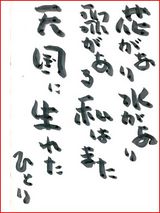 花があり水があり
がある私はまた
天国に生れた
ひとり